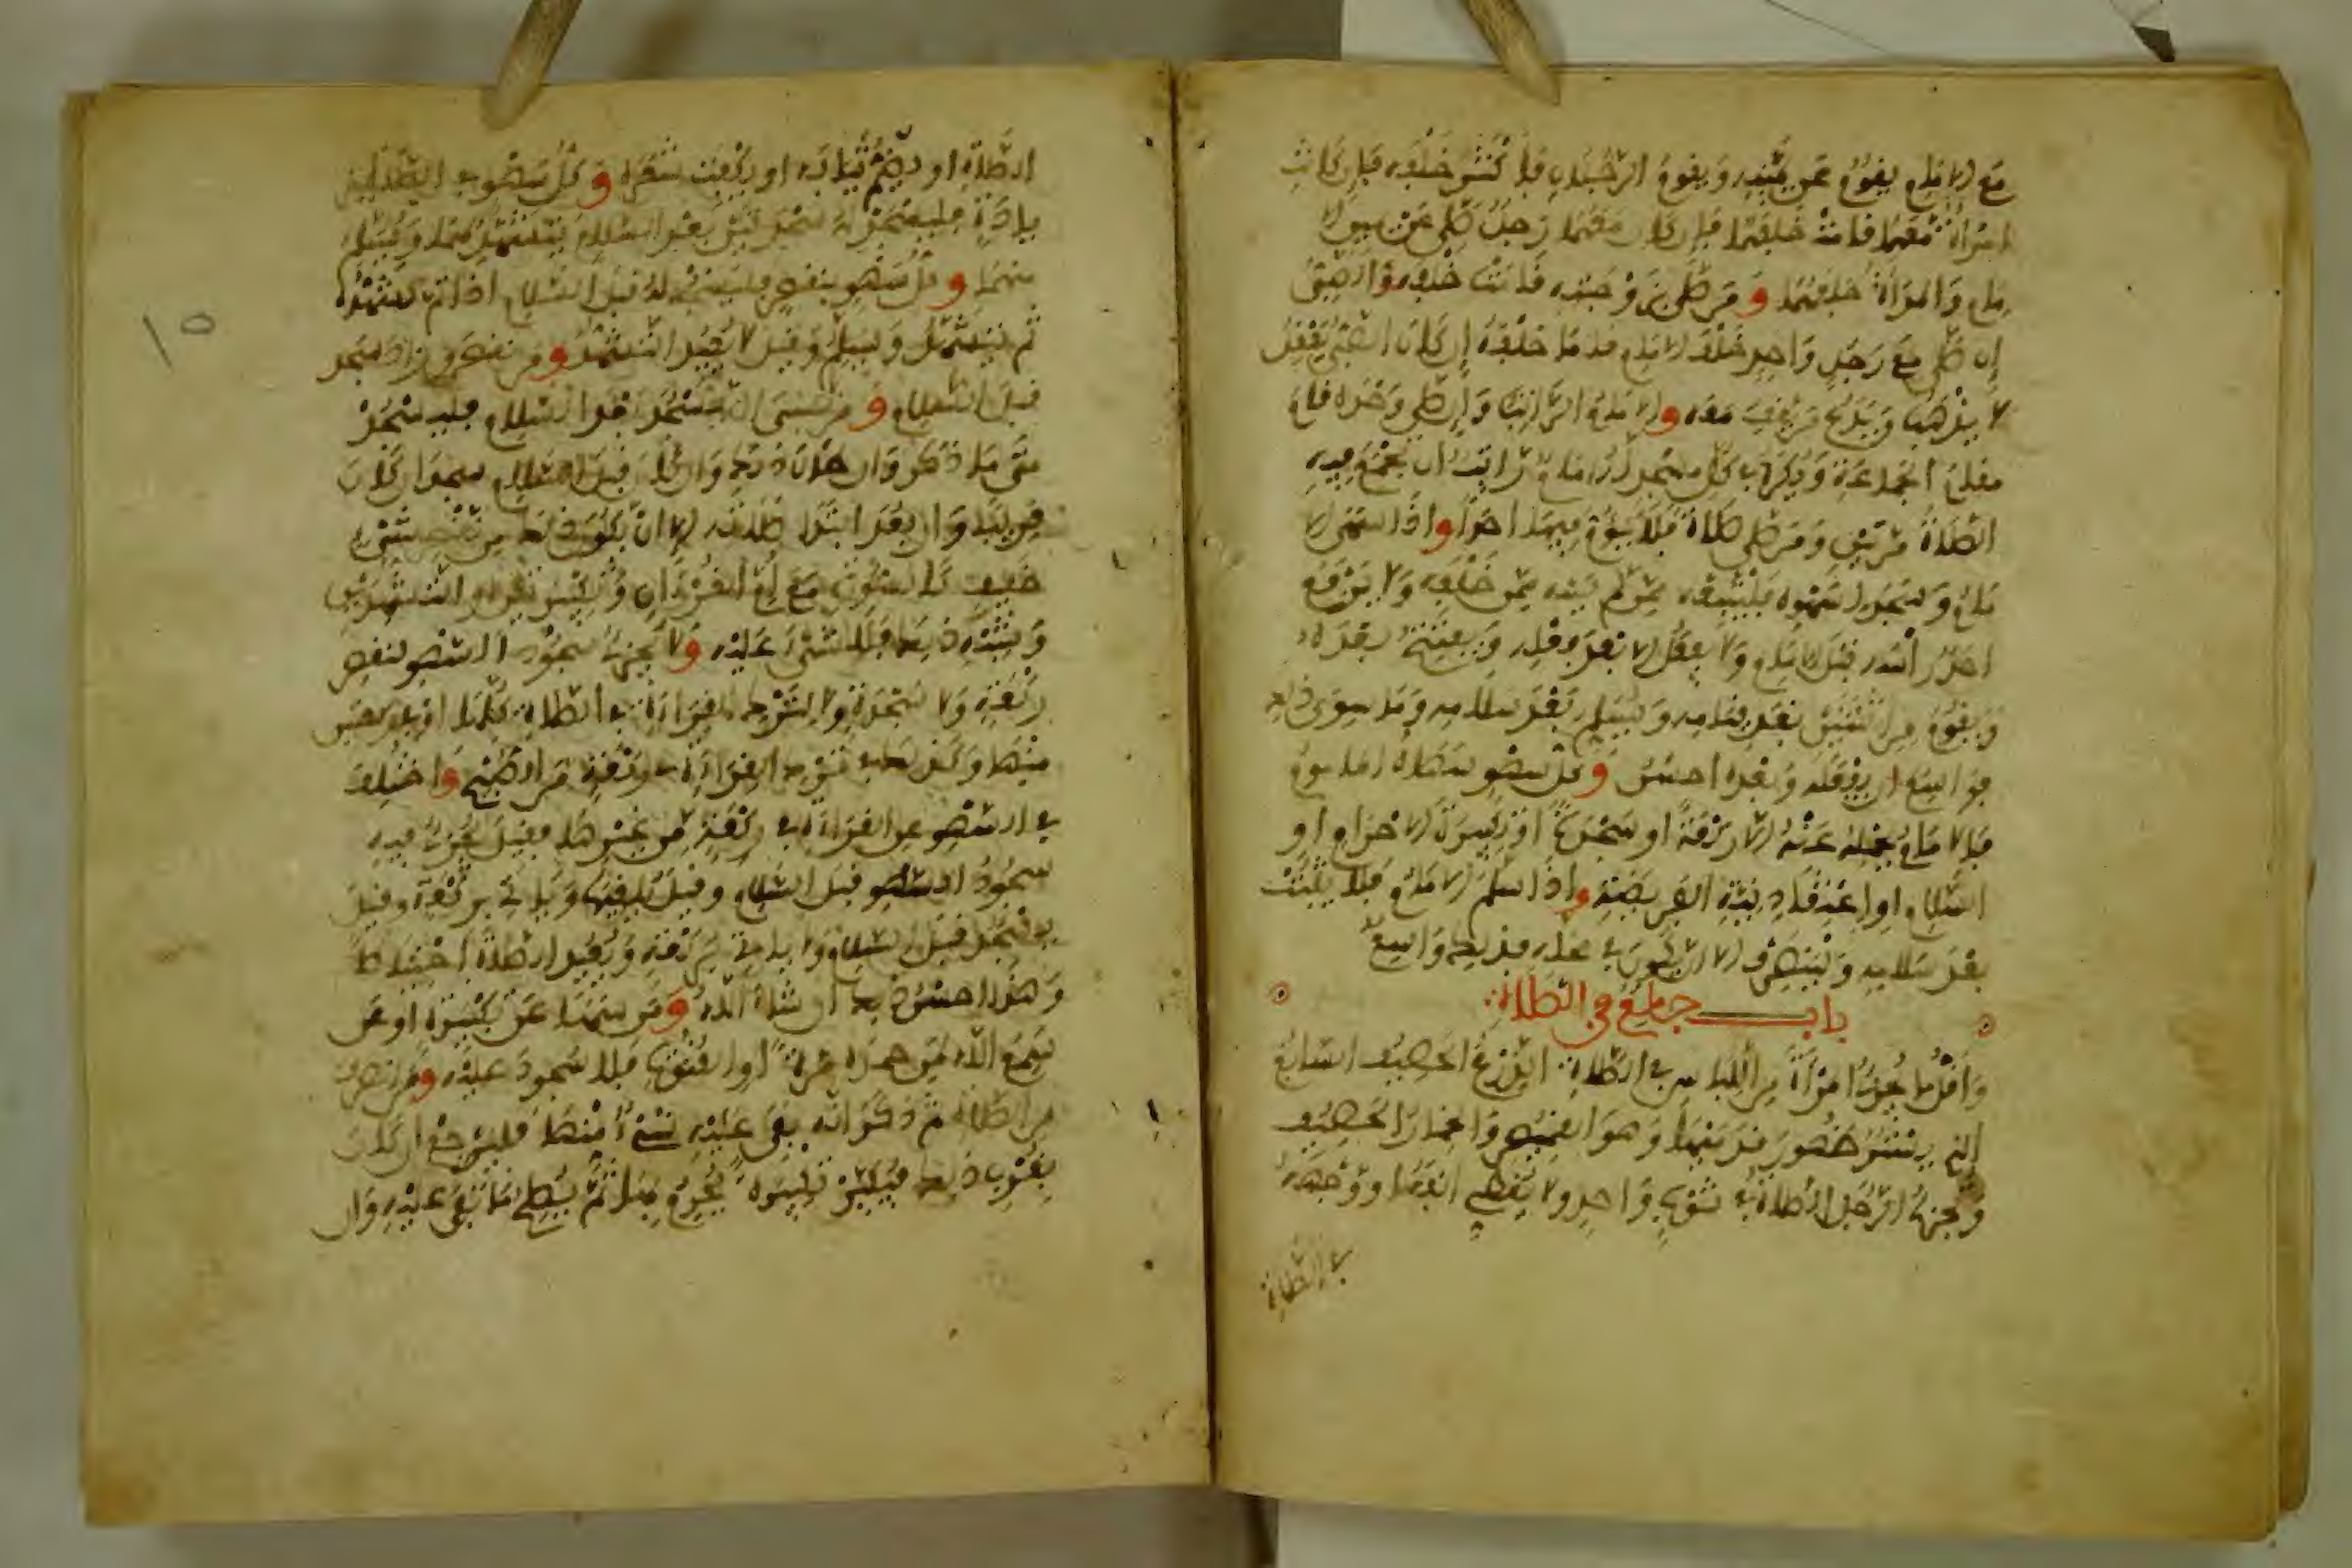 مع الامام يقوم عن يمينه ويقوم الرجلان فأكثر خلفه فإن كانت
امرأة معهما قامت خلفهما فإن كان معهما رجل صلى عن يمين الا
مام والمرأة خلفهما ومن صلى بزوجته قامت خلفه والصبي
إن صلى مع رجل واحد خلف الامام قاما خلفه إن كان الصبي يعقل
لا يذهب ويدع من يقف معه والامام الراتب وإن صلى وحده قام
مقام الجماعة ويكره في كل مسجد له امام راتب أن تجمع فيه
الصلاة مرتين ومن صلى صلاة فلا يؤم فيها احدا واذا سهى الا
مام وسجد لسهوه فليتبعه من لم يسه ممن خلفه ولا يرفع
احد رأسه قبل الامام ولا يفعل الا بعد فعله ويفتتح بعده
ويقوم من اثنتين بعد قيامه ويسلم بعد سلامه وما سوى ذلك
فواسع ان يفعله وبعده احسن وكل سهو سهاه المأموم
فالامام يحمله عنه الا ركعة او سجدة او تكبيرة الاحرام او
السلام او اعتقاد نية الفريضة واذا سلم الامام فلا يثبت
بعد سلامه ولينصرف الا ان يكون في محله فذلك واسع
باب جامع في الصلاة
وأقل ما يجزئ المرأة من اللباس في الصلاة الدرع الحصيف السابغ
الذي يستر ظهور قدميها وهو القميص والخمار الحصيف
ويجزئ الرجل الصلاة في ثوب واحد ولا يغطي انفه او وجهه
في الصلاة
الصلاة او يضم ثيابه او يكفت شعره وكل سهو في الصلاة
بزيادة فليسجد له سجدتين بعد السلام يتشهد لهما ويسلم
منهما وكل سهو بنقص فليسجد له قبل السلام اذا تم تشهده
ثم يتشهد ويسلم وقيل لا يعيد التشهد ومن نقص وزاد سجد
قبل السلام ومن نسي ان يسجد بعد السلام فليسجد
متى ما ذكر وان طال ذلك وان كان قبل السلام سجد ان كان
قريبا وان بعد ابتدأ صلاته الا ان يكون ذلك من نقص شيء
خفيف كالسورة مع أم القرآن والتكبيرتين او التشهدين
وشبه ذلك فلا شيء عليه ولا يجزئ سجود السهو لنقص
ركعة ولا سجدة ولا لترك القراءة في الصلاة كلها او في ركعتين
منها وكذلك في ترك القراءة في ركعة من الصبح واختلف
في السهو عن القراءة في ركعة من غيرها فقيل يجزئ فيه
سجود السهو قبل السلام وقيل يلغيها ويأتي بركعة وقيل
يسجد قبل السلام ولا يأتي بركعة ويعيد الصلاة احتياطا
وهذا احسن ذلك ان شاء الله ومن سها عن تكبيرة او عن
سمع الله لمن حمده مرة او القنوت فلا سجود عليه ومن انصرف
من الصلاة ثم ذكر انه بقي عليه شيء منها فليرجع ان كان
بقرب ذلك فيكبر تكبيرة يحرم بها ثم يصلي ما بقي عليه وان
١٥